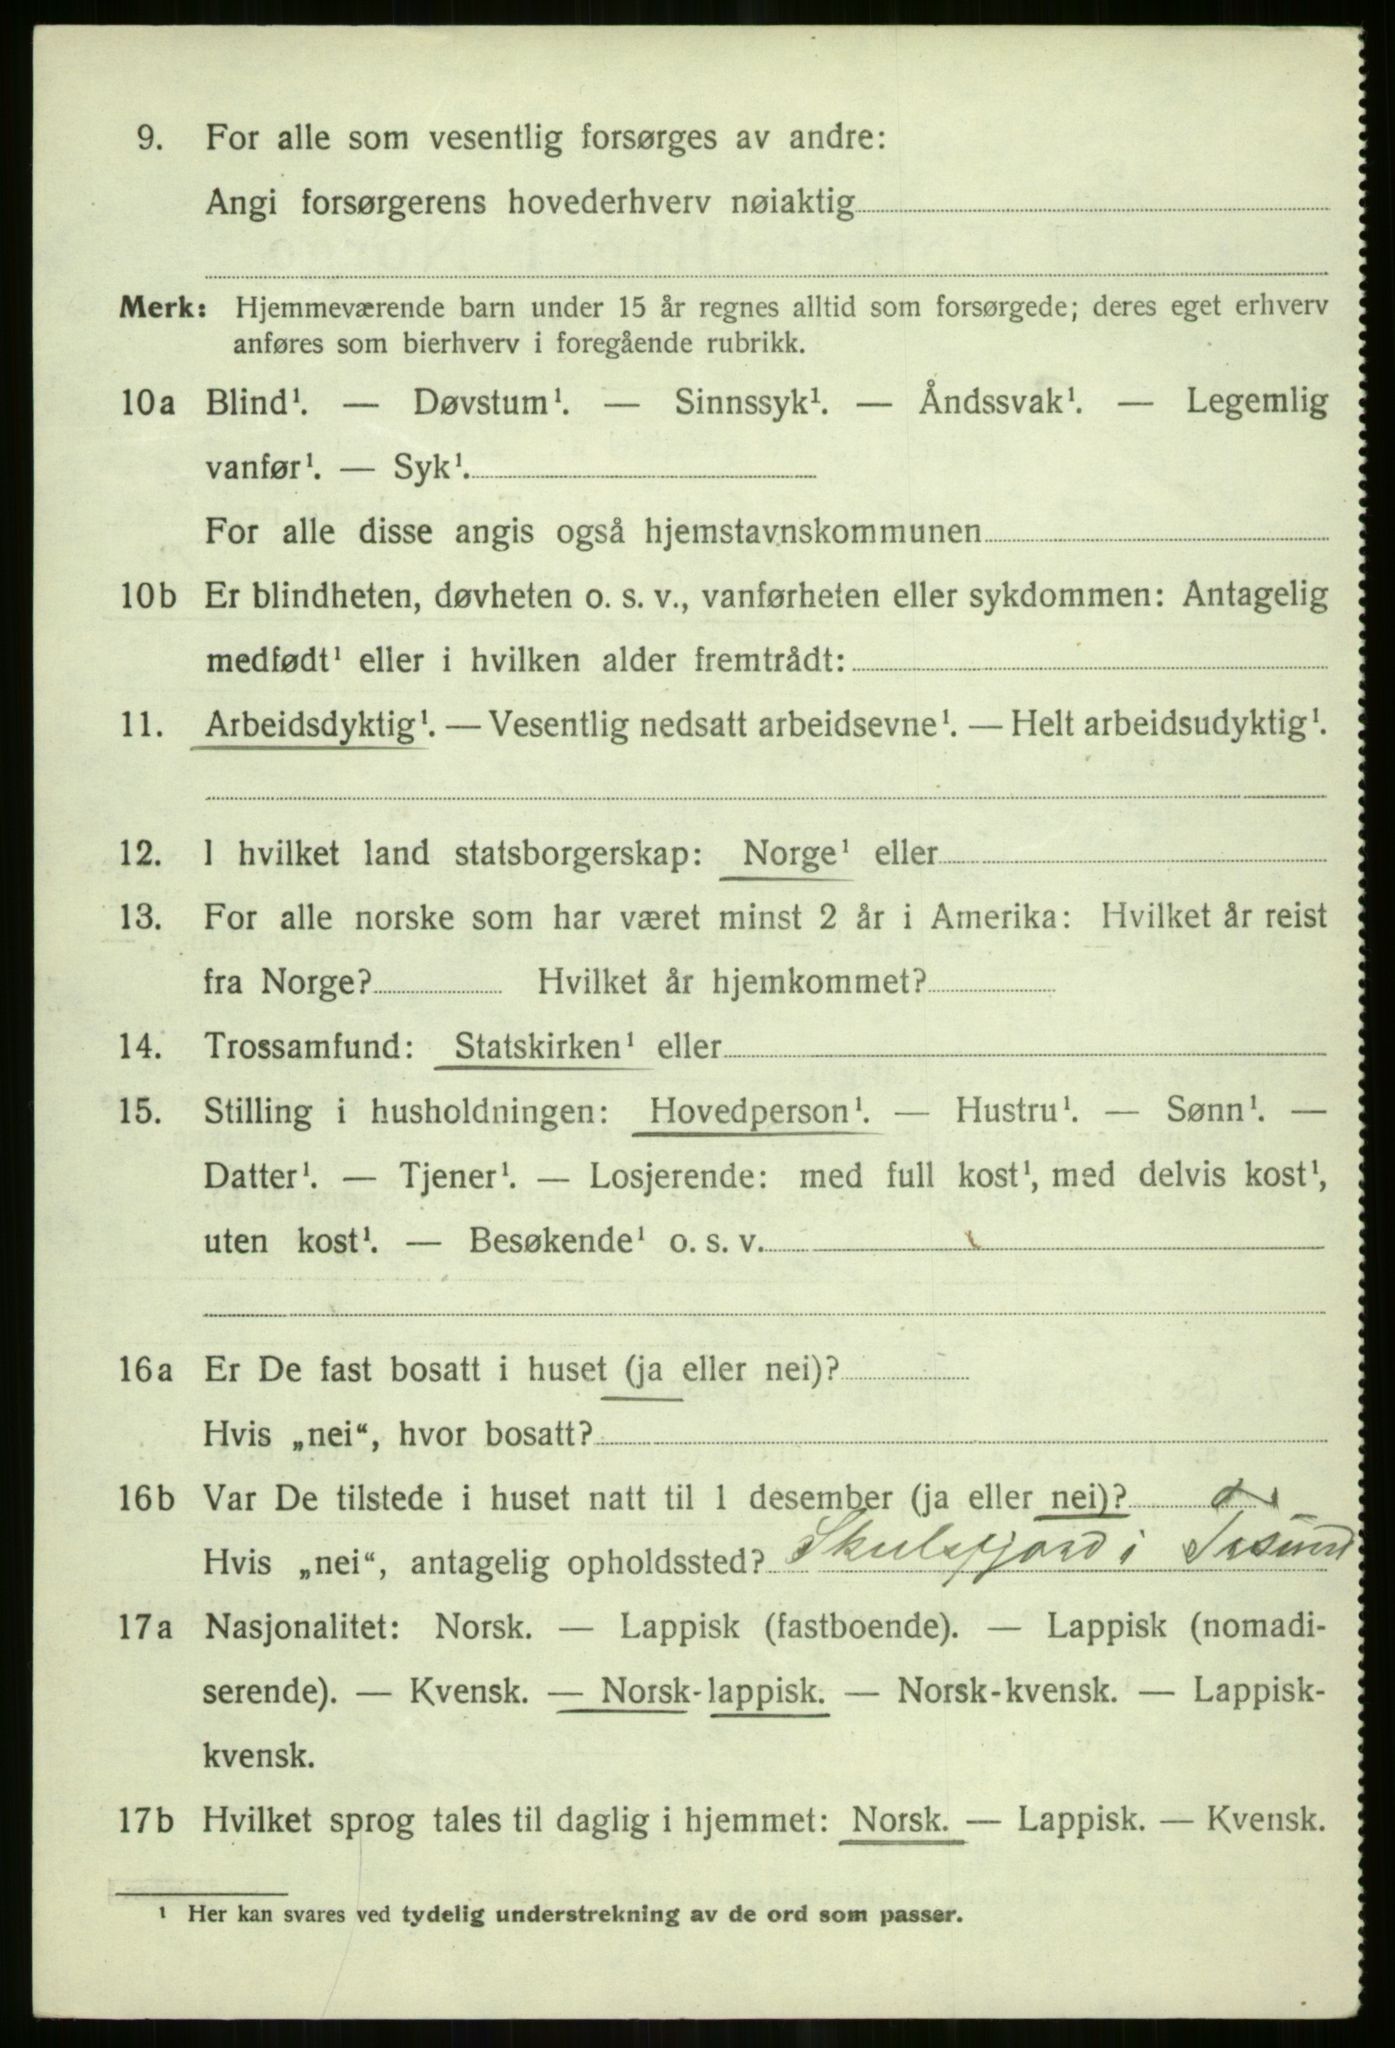 9. For alle som vesentlig forsørges av andre:
Angi forsørgerens hovederhverv nøiaktig
Merk: Hjemmeværende barn under 15 år regnes alltid som forsørgede; deres eget erhverv
anføres som bierhverv i foregående rubrikk.
10a Blind¹. — Døvstum¹. — Sinnssyk¹. — Åndssvak¹. — Legemlig
vanfør¹. — Syk¹.
For alle disse angis også hjemstavnskommunen
10b Er blindheten, døvheten o. s. v., vanførheten eller sykdommen: Antagelig
medfødt¹ eller i hvilken alder fremtrådt:
11. Arbeidsdyktig¹. — Vesentlig nedsatt arbeidsevne¹. — Helt arbeidsudyktig¹.
12. I hvilket land statsborgerskap: Norge¹ eller
13. For alle norske som har været minst 2 år i Amerika: Hvilket år reist
fra Norge? Hvilket år hjemkommet?
14. Trossamfund: Statskirken¹ eller
15. Stilling i husholdningen: Hovedperson¹. — Hustru¹. — Sønn¹. —
Datter¹. — Tjener¹. — Losjerende: med full kost¹, med delvis kost¹,
uten kost¹. — Besøkende¹ o. s. v.
16a Er De fast bosatt i huset (ja eller nei)?
Hvis „nei“, hvor bosatt?
16b Var De tilstede i huset natt til 1 desember (ja eller nei)?
Hvis „nei“, antagelig opholdssted? Skulsfjord i
17a Nasjonalitet: Norsk. — Lappisk (fastboende). — Lappisk (nomadi-
serende). — Kvensk. — Norsk-lappisk. — Norsk-kvensk. — Lappisk-
kvensk.
17b Hvilket sprog tales til daglig i hjemmet: Norsk. — Lappisk. — Kvensk.
¹ Her kan svares ved tydelig understrekning av de ord som passer.